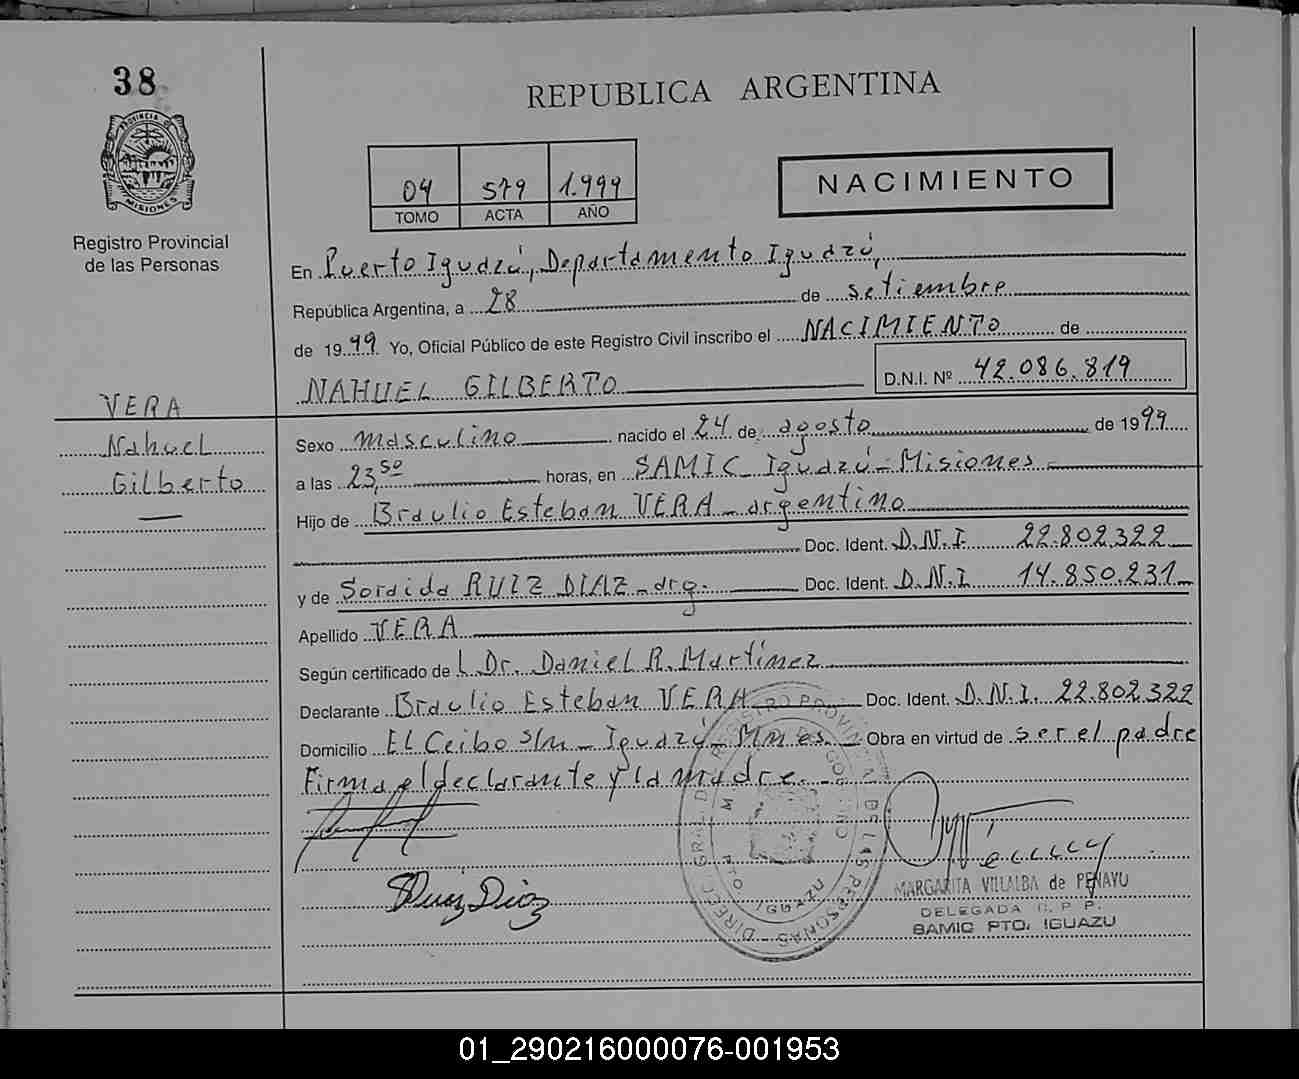 38
REPUBLICA ARGENTINA
PROVINCIA DE
MISIONES
Registro Provincial
de las Personas
04 579 1.999
TOMO ACTA AÑO
NACIMIENTO
En Puerto Iguazú, Departamento Iguazú,
República Argentina, a 28 de setiembre
de 1999 Yo, Oficial Público de este Registro Civil inscribo el NACIMIENTO de
NAHUEL GILBERTO D.N.I. Nº 42.086.819
VERA
Nahuel
Gilberto
Sexo masculino nacido el 24 de agosto de 1999
a las 23,50 horas, en SAMIC Iguazú - Misiones
Hijo de Braulio Esteban VERA - argentino
Doc. Ident. D.N.I 22.802.322
y de Soraida RUIZ DIAZ - arg. Doc. Ident. D.N.I 14.850.231
Apellido VERA
Según certificado de L Dr. Daniel R. Martínez
Declarante Braulio Esteban VERA Doc. Ident. D.N.I. 22.802.322
Domicilio El Ceibo s/n - Iguazú - Mnes - Obra en virtud de ser el padre
Firma el declarante y la madre.
SRuiz Diaz
IGUAZU
MARGARITA VILLALBA de PENAYU
DELEGADA R. P. P.
SAMIC PTO. IGUAZU
01_290216000076-001953